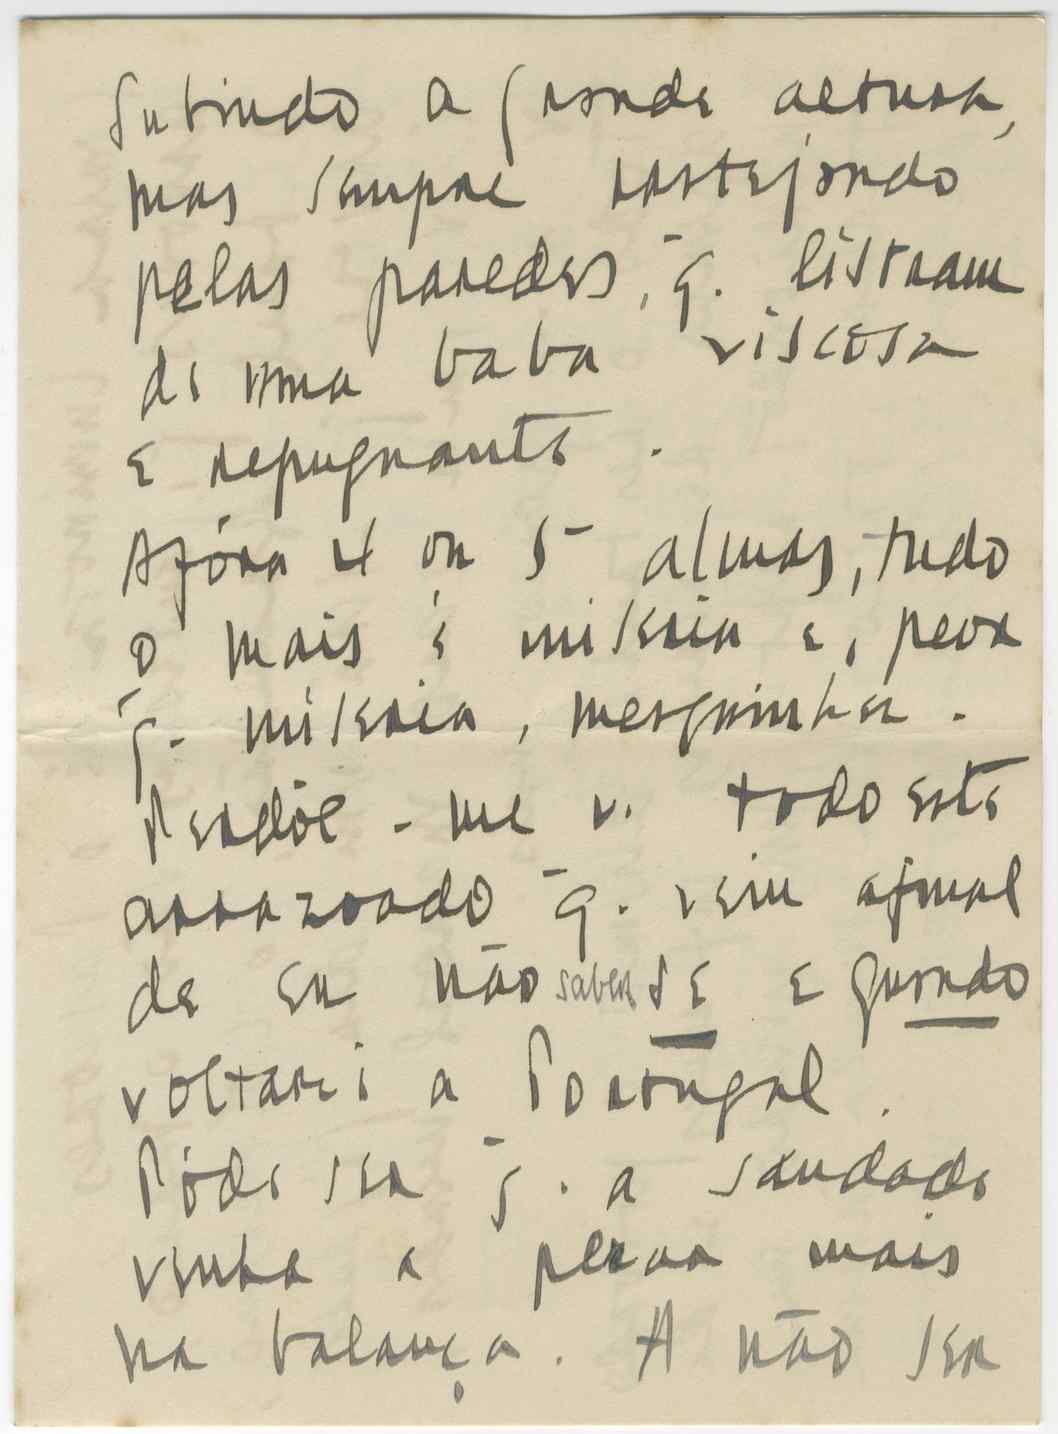 Subindo a grande altura,
mas sempre rastejando
pelas paredes, q̄. listram
de uma baba viscosa
e repugnante.
Afóra 4 ou 5 almas, tudo
o mais é miseria e, peor
q̄. miseria, mesquinha.
Perdôe-me v. todo este
arrazoado q̄. vem afinal
de eu não saber se e quando
voltarei a Portugal.
Póde ser q̄. a saudade
venha a pesar mais
na balança. A não ser